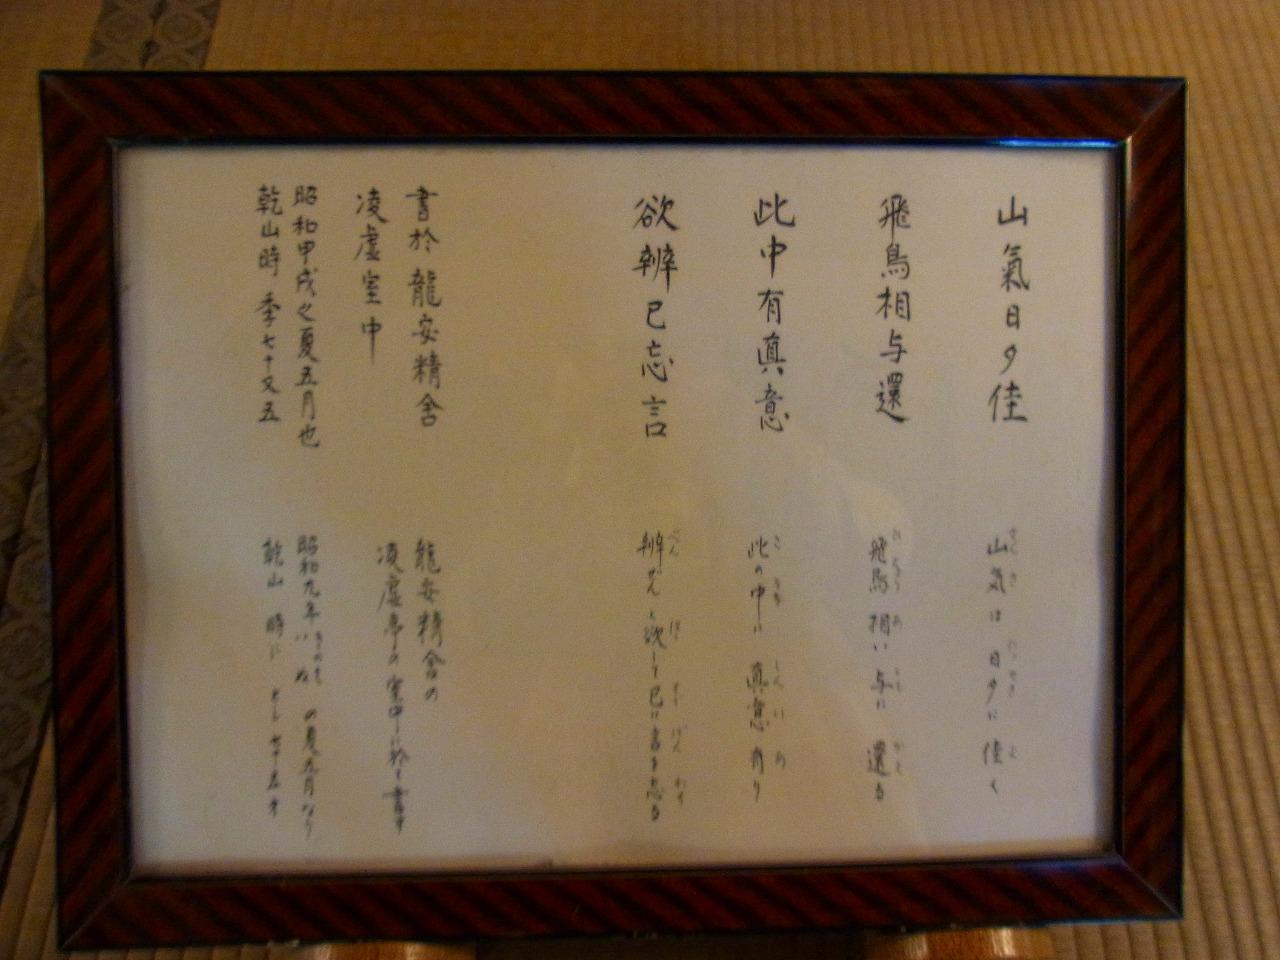 山氣日夕佳
飛鳥相与還
此中有真意
欲辨已忘言
書於龍安精舎
凌虚室中
昭和甲戌之夏五月也
乾山時季七十又五
山気は日夕に佳く
飛鳥相い与に還る
此の中に真意有り
辨ぜんと欲して已に言を忘る
龍安精舎の
凌虚亭の室中に於て書す
昭和九年 の夏五月なり
乾山 時に とし七十五才